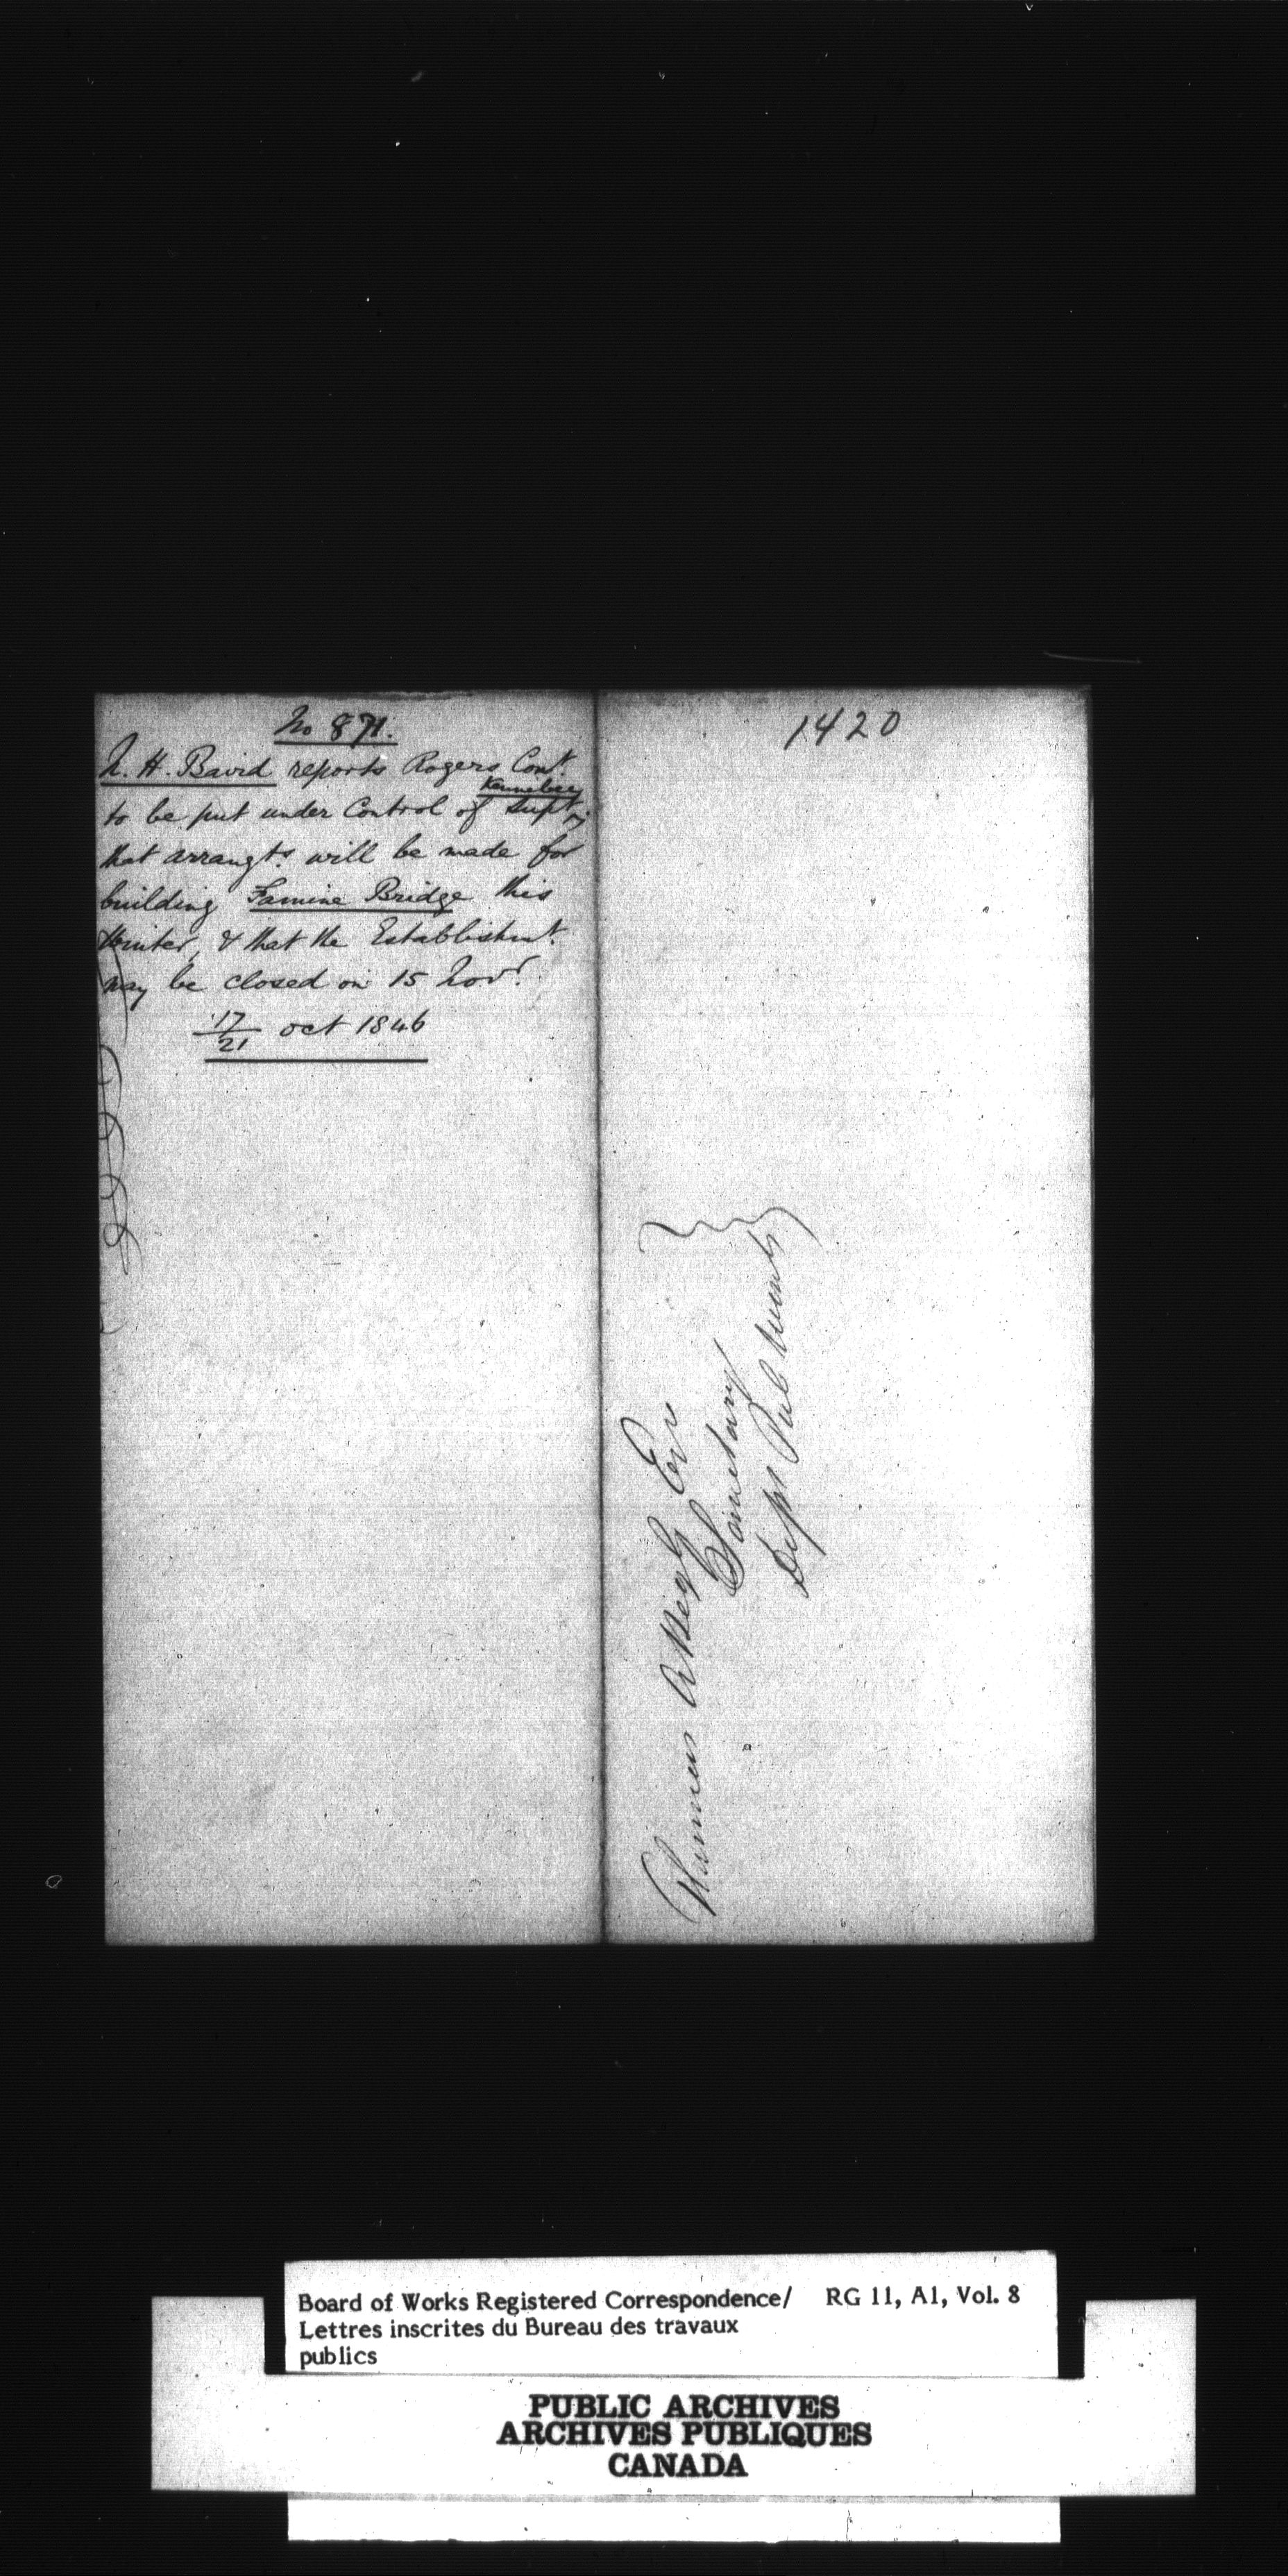 No 871.
N. H. Baird reports Rogers Cont.
to be put under Control of Kennebec Supt.
that arrangts. will be made for
building Famine Bridge this
Winter, & that the Establishmt.
may be closed on 15 Novr.
17/21 oct 1846
1420
Thomas A Begly Esqr
Secretary
Dept Pub Works
Board of Works Registered Correspondence/ RG 11, A1, Vol. 8
Lettres inscrites du Bureau des travaux
publics
PUBLIC ARCHIVES
ARCHIVES PUBLIQUES
CANADA